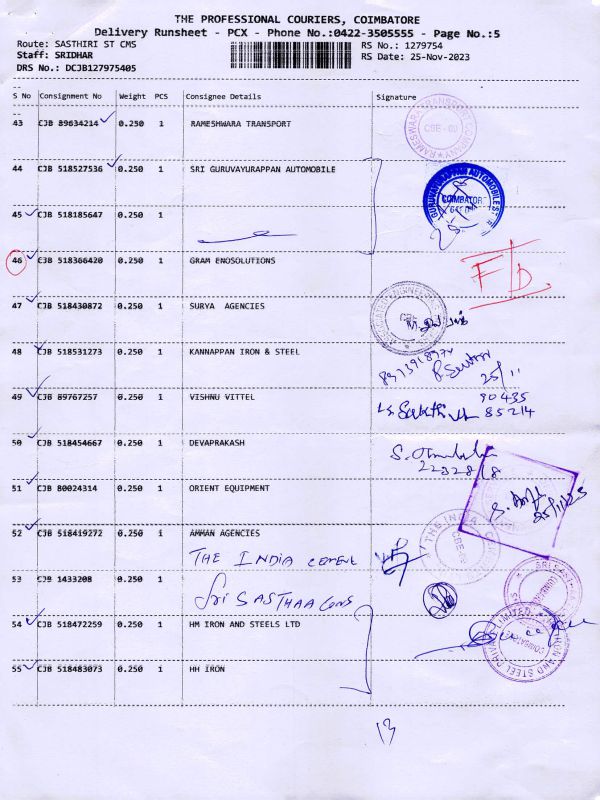 THE PROFESSIONAL COURIERS, COIMBATORE
Delivery Runsheet - PCX - Phone No.:0422-3505555 - Page No.:5
Route: SASTHIRI ST CMS
RS No.: 1279754
Staff: SRIDHAR
RS Date: 25-Nov-2023
DRS No.: DCJB127975405
S No Consignment No Weight PCS Consignee Details Signature
43 CJB 89634214 0.250 1 RAMESHWARA TRANSPORT
44 CJB 518527536 0.250 1 SRI GURUVAYURAPPAN AUTOMOBILE
45 CJB 518185647 0.250 1
46 CJB 518366420 0.250 1 GRAM ENOSOLUTIONS
F/D.
47 CJB 518430872 0.250 1 SURYA AGENCIES
48 CJB 518531273 0.250 1 KANNAPPAN IRON & STEEL
25/11
49 CJB 89767257 0.250 1 VISHNU VITTEL
90435
85214
50 CJB 518454667 0.250 1 DEVAPRAKASH
51 CJB 80024314 0.250 1 ORIENT EQUIPMENT
25/11/23
52 CJB 518419272 0.250 1 AMMAN AGENCIES
THE INDIA CEMENT
53 CJB 1433208 0.250 1
Sri SASTHAA Cons
54 CJB 518472259 0.250 1 HM IRON AND STEELS LTD
55 CJB 518483073 0.250 1 HH IRON
13